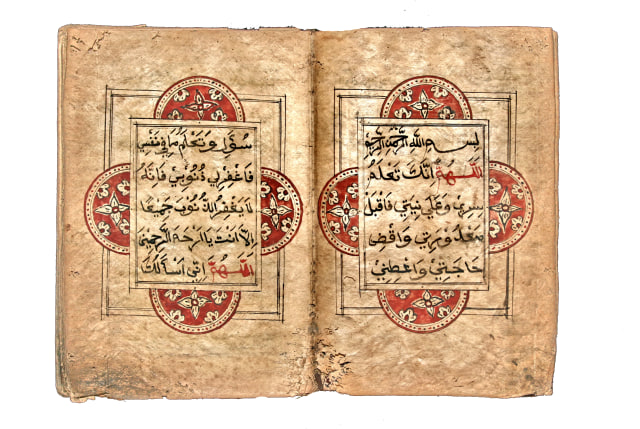 بسم الله الرحمن الرحيم
اللهم انك تعلم
سري وعلا نيتي فاقبل
معذرتي واقض
حاجتي واعطني
سؤلي وتعلم ما في نفسي
فاغفر لي ذنوبي فانه
لا يغفر الذنوب جميعا
الا انت يا ارحم الرحمين
اللهم اني اسالك